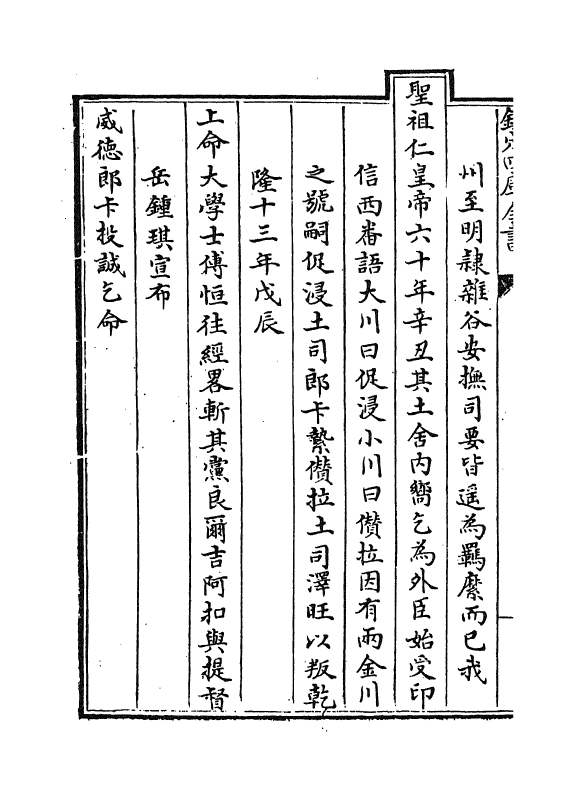 欽定四庫全書
州至明隸雜谷安撫司要皆遥為羈縻而已我
聖祖仁皇帝六十年辛丑其土舍内嚮乞為外臣始受印
信西番語大川曰促浸小川曰儹拉因有兩金川
之號嗣促浸土司郎卡縶儹拉土司澤旺以叛乾
隆十三年戊辰
上命大學士傅恒往經畧斬其黨良爾吉阿扣與提督
岳鍾琪宣布
威德郎卡投誠乞命